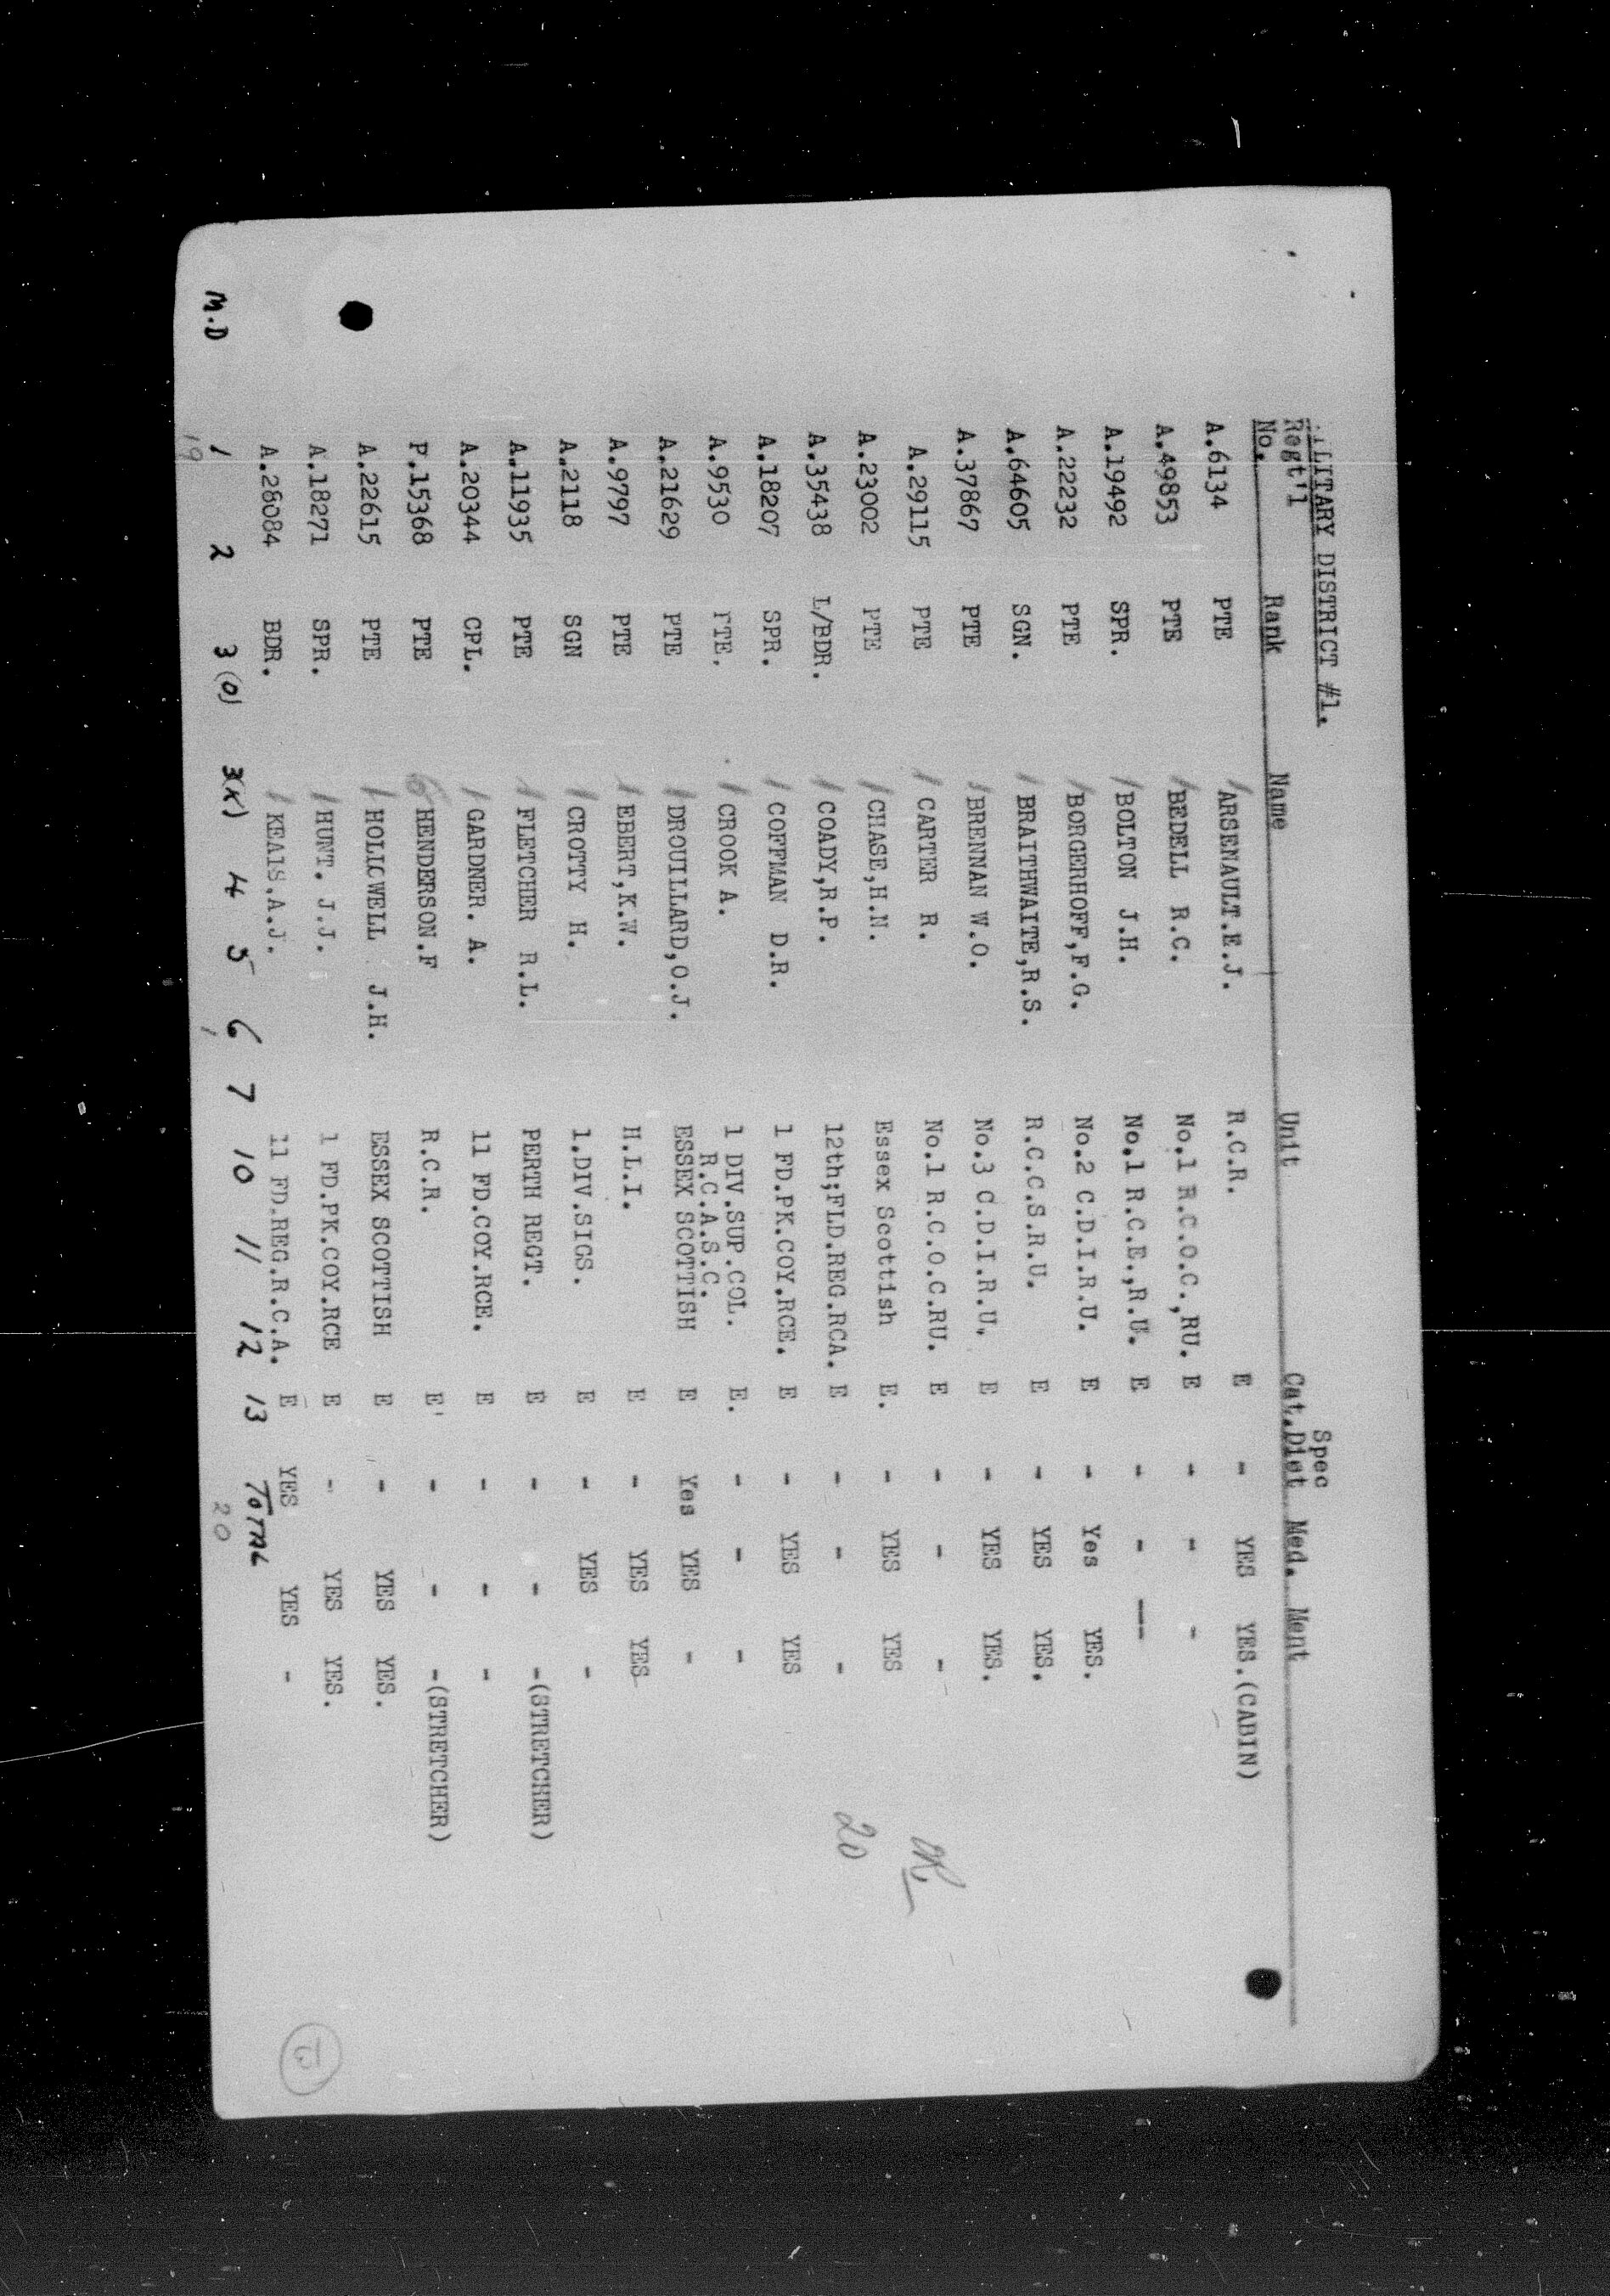 MILITARY DISTRICT #1.
Spec
Regt'l
No. Rank Name Unit Cat. Diet Med. Ment
A.6134 PTE / ARSENAULT.E.J. R.C.R. E - YES YES.(CABIN)
A.49853 PTE / BEDELL R.C. No.1 R.C.O.C.,RU. E - - -
A.19492 SPR. / BOLTON J.H. No.1 R.C.E.,R.U. E - - --
A.22232 PTE / BORGERHOFF,F.G. No.2 C.D.I.R.U. E - Yes YES.
A.64605 SGN. / BRAITHWAITE,R.S. R.C.C.S.R.U. E - YES YES.
A.37867 PTE / BRENNAN W.O. No.3 C.D.I.R.U. E - YES YES.
A.29115 PTE / CARTER R. No.1 R.C.O.C.RU. E - - -
A.23002 PTE / CHASE,H.N. Essex Scottish E. - YES YES
A.35438 L/BDR. / COADY,R.P. 12th;FLD.REG.RCA. E - - -
A.18207 SPR. / COFFMAN D.R. 1 FD.PK.COY.RCE. E - YES YES
A.9530 PTE. / CROOK A. 1 DIV.SUP.COL. E. - - -
R.C.A.S.C.
A.21629 PTE / DROUILLARD,O.J. ESSEX SCOTTISH E Yes YES -
A.9797 PTE / EBERT,K.W. H.L.I. E - YES YES
A.2118 SGN / CROTTY H. 1.DIV.SIGS. E - YES -
A.11935 PTE / FLETCHER R.L. PERTH REGT. E - - -(STRETCHER)
A.20344 CPL. / GARDNER. A. 11 FD.COY.RCE. E - - -
P.15368 PTE 6 HENDERSON.F R.C.R. E - - -(STRETCHER)
A.22615 PTE / HOLICWELL J.H. ESSEX SCOTTISH E - YES YES.
A.18271 SPR. / HUNT. J.J. 1 FD.PK.COY.RCE E - YES YES.
A.28084 BDR. / KEAIS.A.J. 11 FD.REG.R.C.A. E YES YES -
M.D 1 2 3(O) 3(K) 4 5 6 7 10 11 12 13 TOTAL
19 1 20
OK
20
13